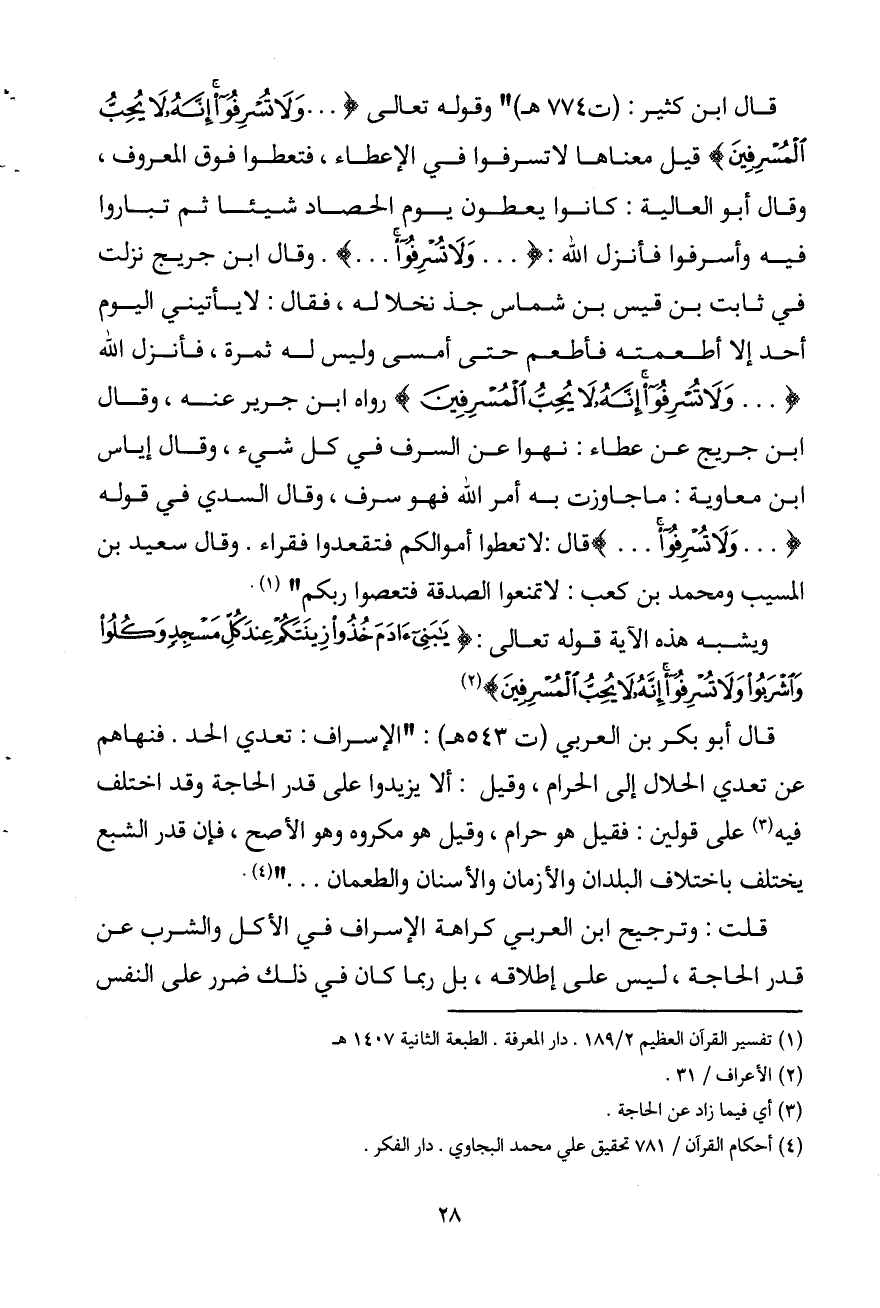 قال ابن كثير : (ت٧٧٤ هـ)" وقوله تعالى ﴿ ...وَلَا تُسْرِفُوٓا۟ ۚ إِنَّهُۥ لَا يُحِبُّ
ٱلْمُسْرِفِينَ﴾ قيل معناها لاتسرفوا في الإعطاء ، فتعطوا فوق المعروف ،
وقال أبو العالية : كانوا يعطون يوم الحصاد شيئا ثم تباروا
فيه وأسرفوا فأنزل الله :﴿ ... وَلَا تُسْرِفُوٓا۟ ۚ ...﴾ . وقال ابن جريج نزلت
في ثابت بن قيس بن شماس جذ نخلا له ، فقال : لايأتيني اليوم
أحد إلا أطعمته فأطعم حتى أمسى وليس له ثمرة ، فأنزل الله
﴿ ... وَلَا تُسْرِفُوٓا۟ ۚ إِنَّهُۥ لَا يُحِبُّ ٱلْمُسْرِفِينَ ﴾ رواه ابن جرير عنه ، وقال
ابن جريج عن عطاء : نهوا عن السرف في كل شيء ، وقال إياس
ابن معاوية : ماجاوزت به أمر الله فهو سرف ، وقال السدي في قوله
﴿ ... وَلَا تُسْرِفُوٓا۟ ۚ ... ﴾قال :لاتعطوا أموالكم فتقعدوا فقراء . وقال سعيد بن
المسيب ومحمد بن كعب : لاتمنعوا الصدقة فتعصوا ربكم" (١) .
ويشبه هذه الآية قوله تعالى :﴿ يَٰبَنِىٓ ءَادَمَ خُذُوا۟ زِينَتَكُمْ عِندَ كُلِّ مَسْجِدٍ وَكُلُوا۟
وَٱشْرَبُوا۟ وَلَا تُسْرِفُوٓا۟ ۚ إِنَّهُۥ لَا يُحِبُّ ٱلْمُسْرِفِينَ ﴾(٢)
قال أبو بكر بن العربي (ت ٥٤٣هـ) : "الإسراف : تعدي الحد . فنهاهم
عن تعدي الحلال إلى الحرام ، وقيل : ألا يزيدوا على قدر الحاجة وقد اختلف
فيه(٣) على قولين : فقيل هو حرام ، وقيل هو مكروه وهو الأصح ، فإن قدر الشبع
يختلف باختلاف البلدان والأزمان والأسنان والطعمان ..."(٤) .
قلت : وترجيح ابن العربي كراهة الإسراف في الأكل والشرب عن
قدر الحاجة ، ليس على إطلاقه ، بل ربما كان في ذلك ضرر على النفس
(١) تفسير القرآن العظيم ١٨٩/٢ . دار المعرفة . الطبعة الثانية ١٤٠٧ هـ
(٢) الأعراف / ٣١ .
(٣) أي فيما زاد عن الحاجة .
(٤) أحكام القرآن / ٧٨١ تحقيق علي محمد البجاوي . دار الفكر .
٢٨